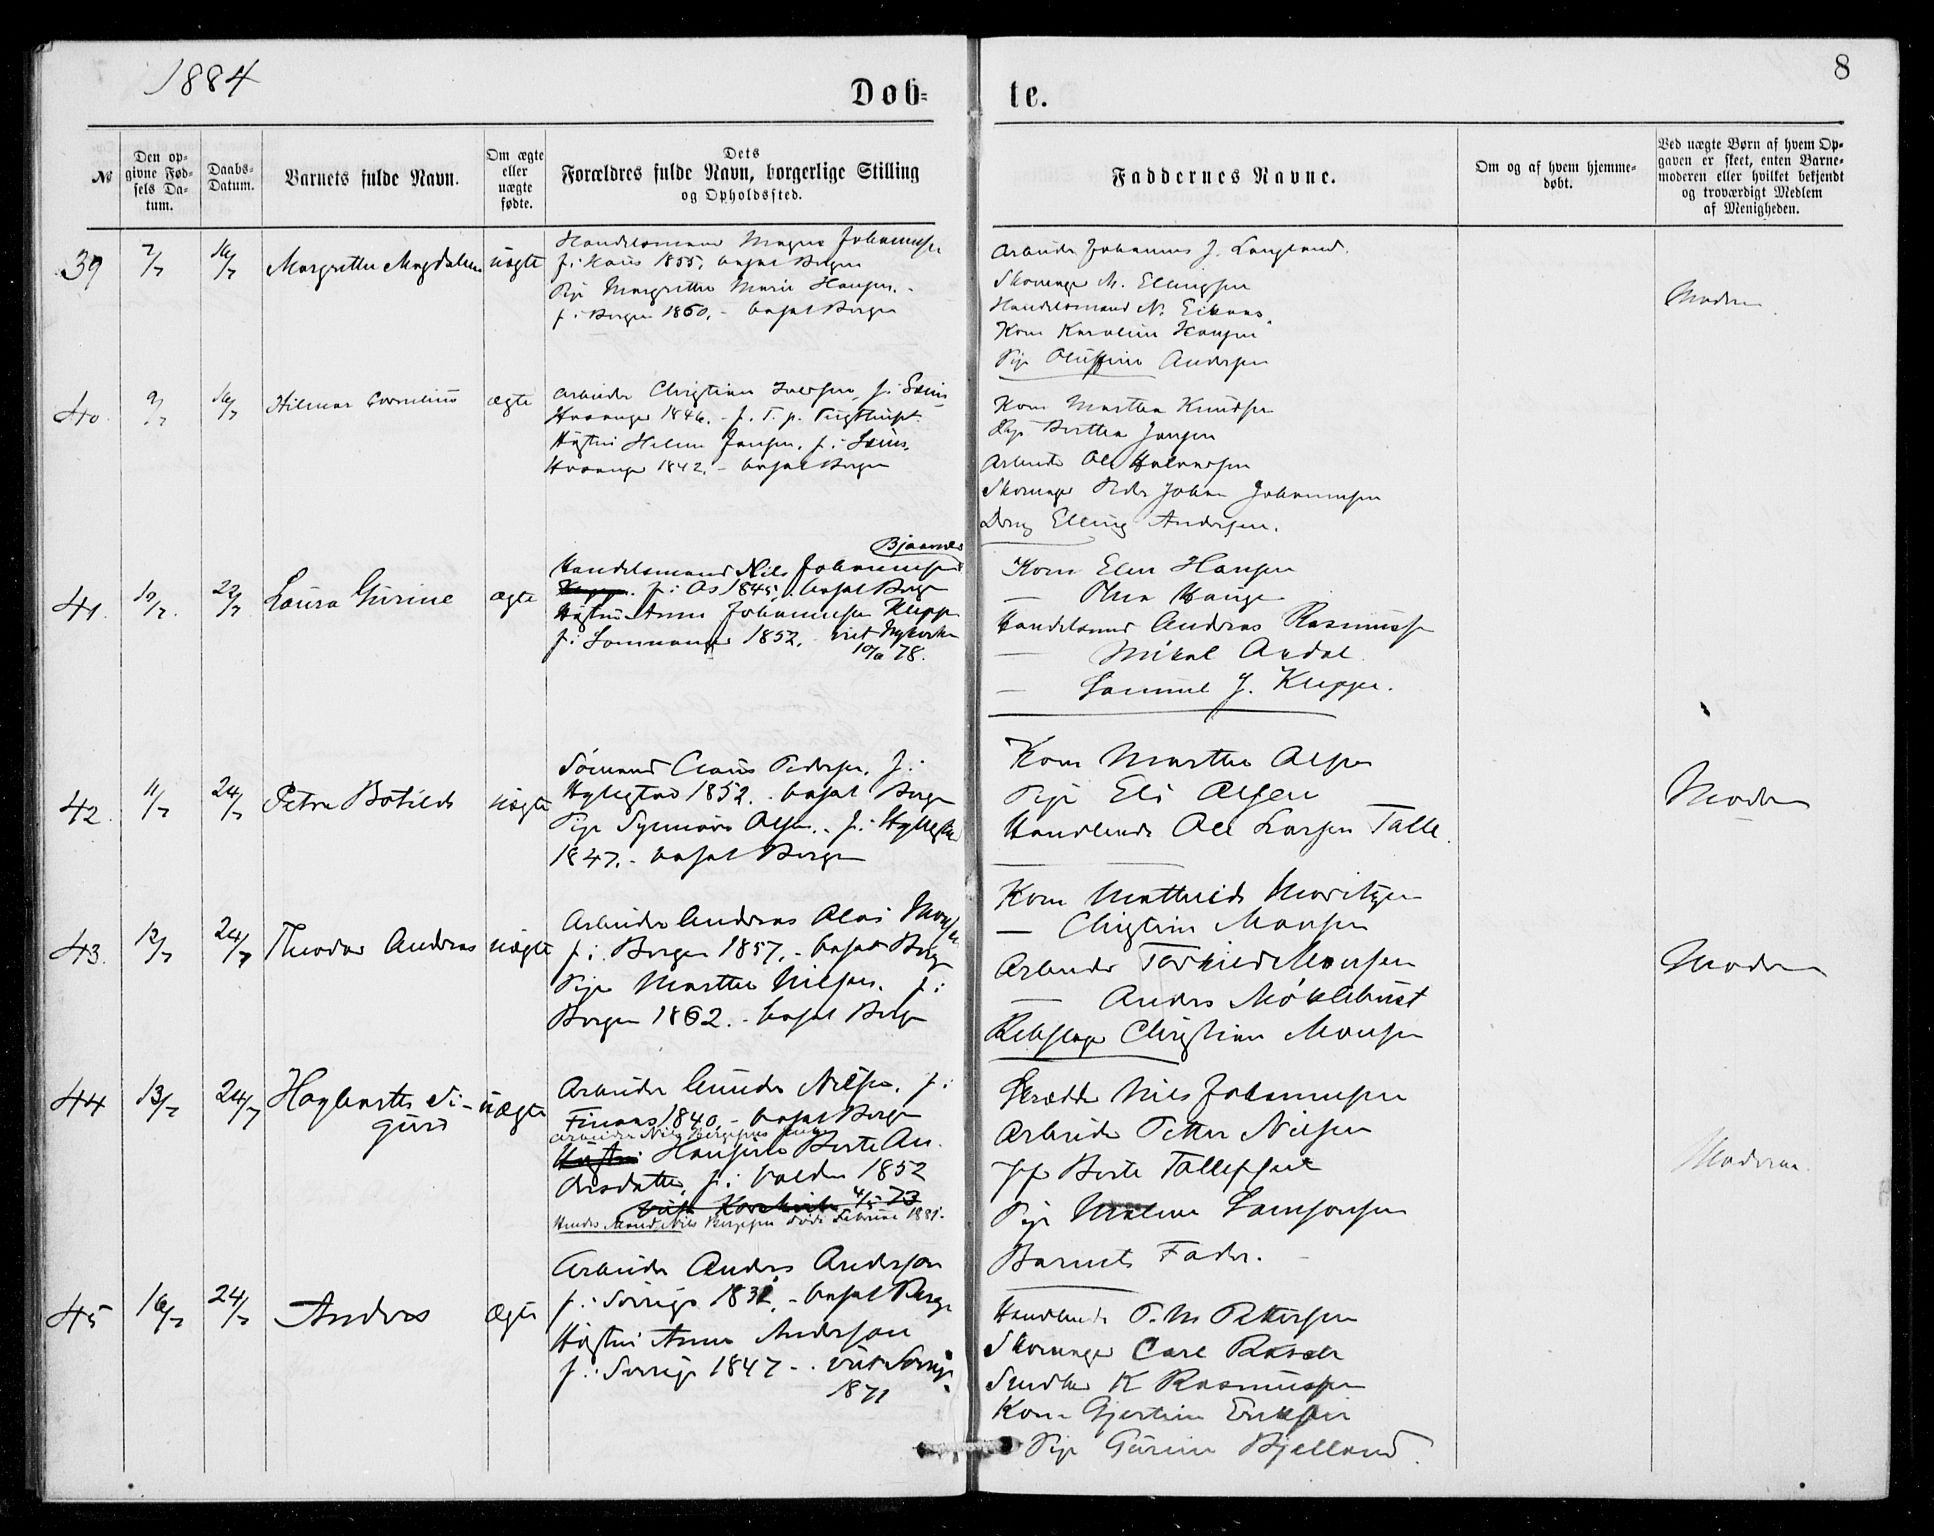 1884
8
Døb-
te.
№
Den op-
givne Fød-
sels Da-
tum.
Daabs-
Datum.
Barnets fulde Navn.
Om ægte
eller
uægte
fødte.
Dets
Forældres fulde Navn, borgerlige Stilling
og Opholdssted.
Faddernes Navne.
Om og af hvem hjemme-
døbt.
Ved uægte Børn af hvem Op-
gaven er skeet, enten Barne-
moderen eller hvilket bekjendt
og troværdigt Medlem
af Menigheden.
39
7/7
16/7
Margrethe Magdalena
uægte
Handelsmand Magne Johannessen
f. i Haus 1855, bosat Bergen
Pige Margrethe Marie Hansen
f. i Bergen 1860. - bosat Bergen
Arbeider Johannes J. Langeland.
Skomager M. Ellingsen
Handelsmand N.
Kone Karoline Hansen
Pige Andersen
Moderen
40.
9/7
16/7
Hilmar Cornelius
ægte
Arbeider Christian Iversen, f. i
1846. -
Hustru Helene Jansen, f. i
1842. - bosat Bergen
Kone Marthe Knudsen
Pige Berthe Jansen
Arbeider Ole Halvorsen
Skomager Peder Johan Johannesen
Dreng Elling Andersen.
41.
10/7.
23/7
Laura Gurine
ægte
Bjaanes
Handelsmand Nils Johannessen
f. i Os 1845, bosat Bergen
Hustru Anna Johannessen Kleppe
f. i Samnanger 1852. viet Nykirken
78.
Kone Elen Hansen
— Olina Hauge
Handelsmand Andreas Rasmussen
— Mikal Aadal
— Samuel J. Kleppe.
42.
11/7
24/7
Petra Botilde
uægte
Sømand Claus Pedersen, f. i
Hyllestad 1852. - bosat Bergen
Pige Synnøve Olsen. - f. i Hyllestad
1847. - bosat Bergen
Kone Marthe Olsen
Pige Eli Olsen
Handlende Ole Larsen Talle.
Moderen
43.
12/7
24/7
Theodor Andreas
uægte
Arbeider Andreas Olai Monsen
f. i Bergen 1857. - bosat Bergen
Pige Marthe Nilsen. f. i
Bergen 1862. - bosat Bergen
Kone Mathilde Moritzen
— Christine Monsen
Arbeider Torkild Monsen
— Anders Møklebust
Rebslager Christian Monsen
Moderen
44
13/7
24/7
Haglarth Si-
gurd
uægte
Arbeider Gunder Nilsen, f. i
Finaas 1840. - bosat Bergen
Arbeider Nils Bergesens Enke
Hustru Hansine Berte An-
dersdatter, f. i Volden 1852
Viet Korskirken 4/5 73
Hendes Mand Nils Bergesen døde Februar 1881.
Skrædder Nils Johannesen
Arbeider Petter Nilsen
Berte Tollefsen
Pige Malene Samsonsen
Barnets Fader.
Moderen.
45
16/7
24/7
Anders
ægte
Arbeider Anders Anderson
f. i Sverrige 1832. - bosat Bergen
Hustru Anna Anderson
f. i Sverrige 1847 - . viet Sverrige
1871
Handlende P. M. Pettersen
Skomager Carl Rasch
Snedker K Rasmussen
Kone Gjertine Eriksen
Pige Gurine Bjelland.